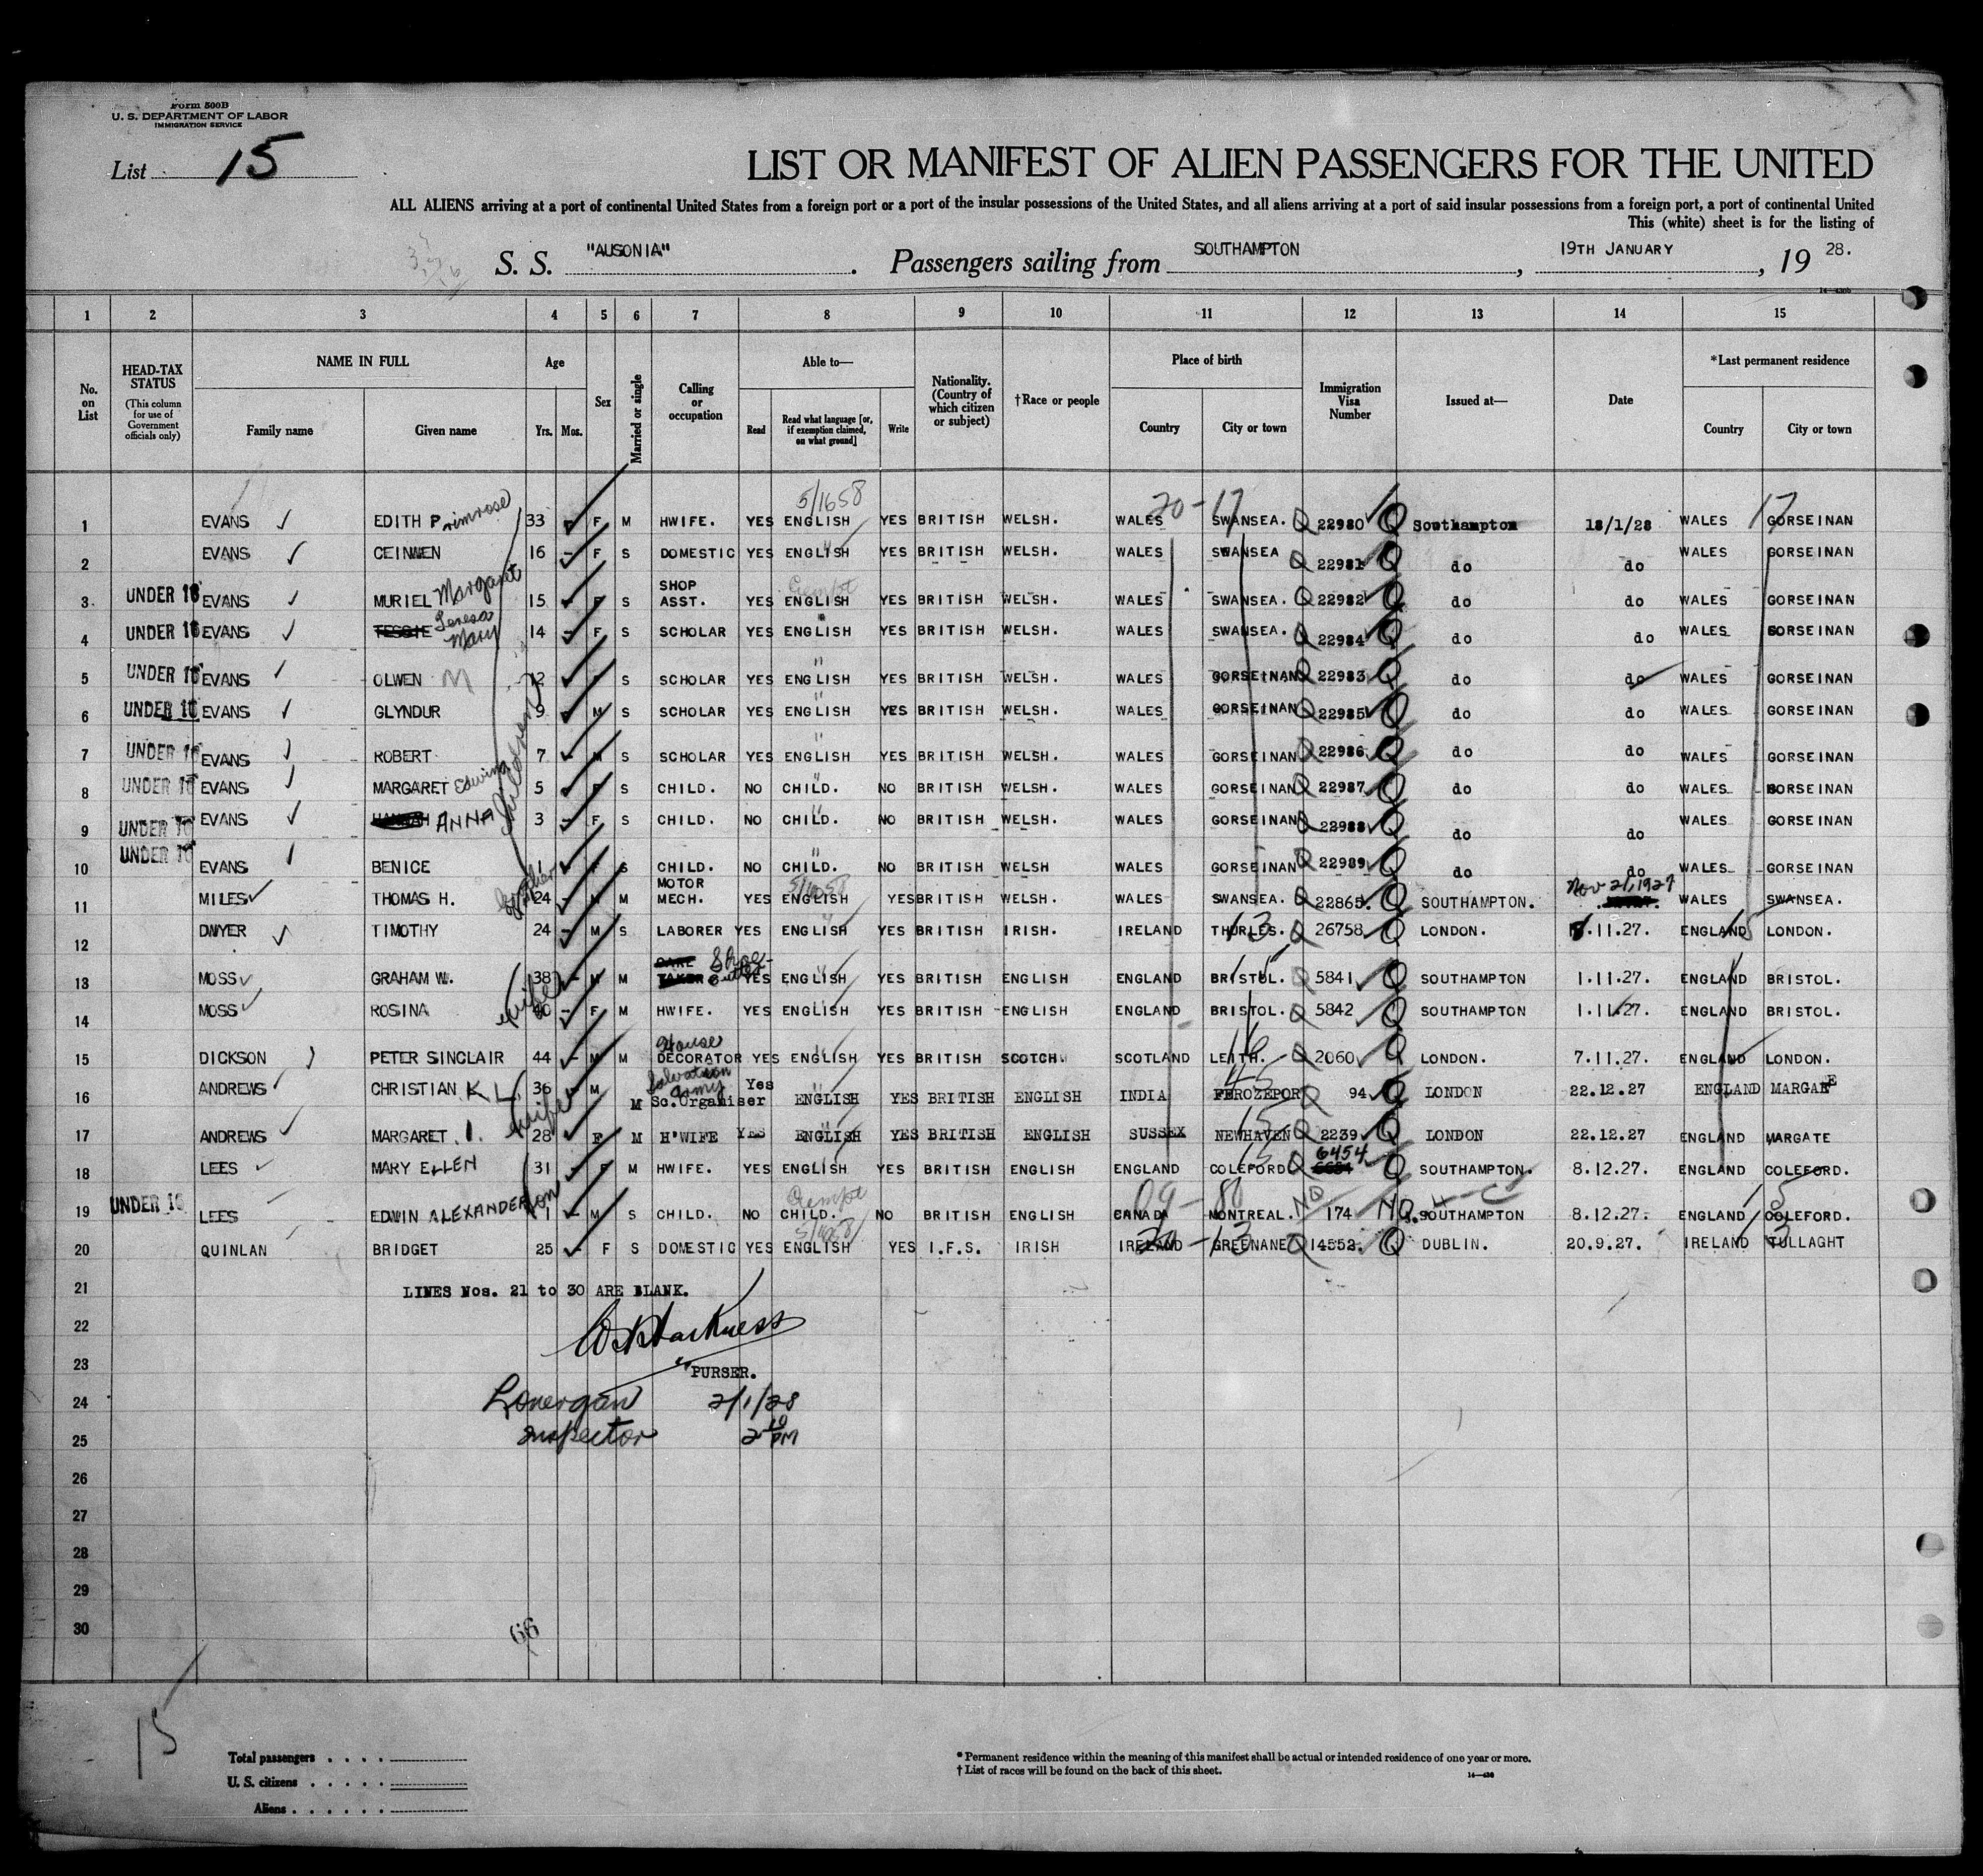 Form 500B
U. S. DEPARTMENT OF LABOR
IMMIGRATION SERVICE
List 15
LIST OR MANIFEST OF ALIEN PASSENGERS FOR THE UNITED
ALL ALIENS arriving at a port of continental United States from a foreign port or a port of the insular possessions of the United States, and all aliens arriving at a port of said insular possessions from a foreign port, a port of continental United
This (white) sheet is for the listing of
S. S. "AUSONIA". Passengers sailing from SOUTHAMPTON, 19TH JANUARY, 19 28.
1 2 3 4 5 6 7 8 9 10 11 12 13 14 15
No. on List
HEAD-TAX STATUS (This column for use of Government officials only)
NAME IN FULL Family name Given name
Age Yrs. Mos.
Sex
Married or single
Calling or occupation
Able to— Read Read what language [or, if exemption claimed, on what ground] Write
Nationality. (Country of which citizen or subject)
†Race or people
Place of birth Country City or town
Immigration Visa Number
Issued at—
Date
*Last permanent residence Country City or town
5/1658 20-17 17
1 EVANS EDITH Primrose 33 F M HWIFE. YES ENGLISH YES BRITISH WELSH. WALES SWANSEA. Q 22980 Q Southampton 18/1/28 WALES GORSEINAN
2 EVANS CEINWEN 16 - F S DOMESTIC YES ENGLISH YES BRITISH WELSH. WALES SWANSEA Q 22981 Q do do WALES GORSEINAN
3 UNDER 16 EVANS MURIEL Margaret 15 F S SHOP ASST. YES ENGLISH YES BRITISH WELSH. WALES SWANSEA. Q 22982 Q do do WALES GORSEINAN
4 UNDER 16 EVANS TESSIE Teresa Mary 14 - F S SCHOLAR YES ENGLISH YES BRITISH WELSH. WALES SWANSEA. Q 22984 Q do do WALES GORSEINAN
5 UNDER 16 EVANS OLWEN M 12 F S SCHOLAR YES " ENGLISH YES BRITISH WELSH. WALES GORSEINAN Q 22983 Q do do WALES GORSEINAN
6 UNDER 16 EVANS GLYNDUR 9 M S SCHOLAR YES " ENGLISH YES BRITISH WELSH. WALES GORSEINAN Q 22985 Q do do WALES GORSEINAN
7 UNDER 16 EVANS ROBERT 7 - M S SCHOLAR YES " ENGLISH YES BRITISH WELSH. WALES GORSEINAN Q 22986 Q do do WALES GORSEINAN
8 UNDER 16 EVANS MARGARET Edwina children 5 F S CHILD. NO CHILD. NO BRITISH WELSH. WALES GORSEINAN Q 22987 Q do do WALES GORSEINAN
9 UNDER 16 EVANS HANNAH ANNA 3 - F S CHILD. NO CHILD. NO BRITISH WELSH. WALES GORSEINAN Q 22988 Q do do WALES GORSEINAN
10 UNDER 16 EVANS BENICE 1 F S CHILD. NO CHILD. NO BRITISH WELSH WALES GORSEINAN Q 22989 Q do do WALES GORSEINAN
11 MILES THOMAS H. brother 24 M M MOTOR MECH. YES ENGLISH YES BRITISH WELSH. WALES SWANSEA. Q 22865. Q SOUTHAMPTON. Nov 21, 1927 WALES SWANSEA.
12 DWYER TIMOTHY 24 - M S LABORER YES ENGLISH YES BRITISH IRISH. IRELAND THURLES. 13 Q 26758 Q LONDON. 11.27. ENGLAND LONDON.
13 MOSS GRAHAM W. 38 - M M CARE TAKER Shoe-Cutter YES ENGLISH YES BRITISH ENGLISH ENGLAND BRISTOL. 15 Q 5841 Q SOUTHAMPTON 1.11.27. ENGLAND BRISTOL.
14 MOSS ROSINA wife 40 F M HWIFE. YES ENGLISH YES BRITISH ENGLISH ENGLAND BRISTOL. Q 5842 Q SOUTHAMPTON 1.11.27. ENGLAND BRISTOL.
15 DICKSON PETER SINCLAIR 44 - M M House DECORATOR YES ENGLISH YES BRITISH SCOTCH. SCOTLAND LEITH. 16 Q 2060 Q LONDON. 7.11.27. ENGLAND LONDON.
16 ANDREWS CHRISTIAN K L 36 - M M Salvation Army Sc.Organiser Yes ENGLISH YES BRITISH ENGLISH INDIA FEROZEPOR 45 Q 94 Q LONDON 22.12.27 ENGLAND MARGATE
17 ANDREWS MARGARET I. wife 28 F M H'WIFE YES ENGLISH YES BRITISH ENGLISH SUSSEX NEWHAVEN 15 Q 2239 Q LONDON 22.12.27 ENGLAND MARGATE
18 LEES MARY ELLEN 31 - F M HWIFE. YES ENGLISH YES BRITISH ENGLISH ENGLAND COLEFORD Q 6454 Q SOUTHAMPTON. 8.12.27. ENGLAND COLEFORD.
19 UNDER 16 LEES EDWIN ALEXANDER son 1 - M S CHILD. NO Exempt CHILD. NO BRITISH ENGLISH 09-80 CANADA MONTREAL. NQ 174 NQ. SOUTHAMPTON 8.12.27. ENGLAND 15 COLEFORD.
20 QUINLAN BRIDGET 25 - F S DOMESTIC YES ENGLISH YES I.F.S. IRISH IRELAND 20-13 GREENANE Q 14552. Q DUBLIN. 20.9.27. IRELAND 13 TULLAGHT
21 LINES Nos. 21 to 30 ARE BLANK.
22 Harkness
23 "PURSER.
24 Lonergan 2/1/28
25 Inspector 2 10 PM
26
27
28
29
30
66
15
Total passengers . . . .
U. S. citizens . . . . .
Aliens . . . . . .
* Permanent residence within the meaning of this manifest shall be actual or intended residence of one year or more.
† List of races will be found on the back of this sheet.
14—430